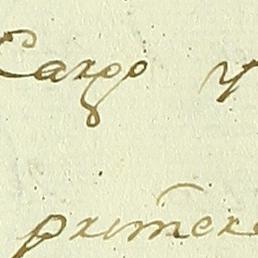 Cargo y
primera